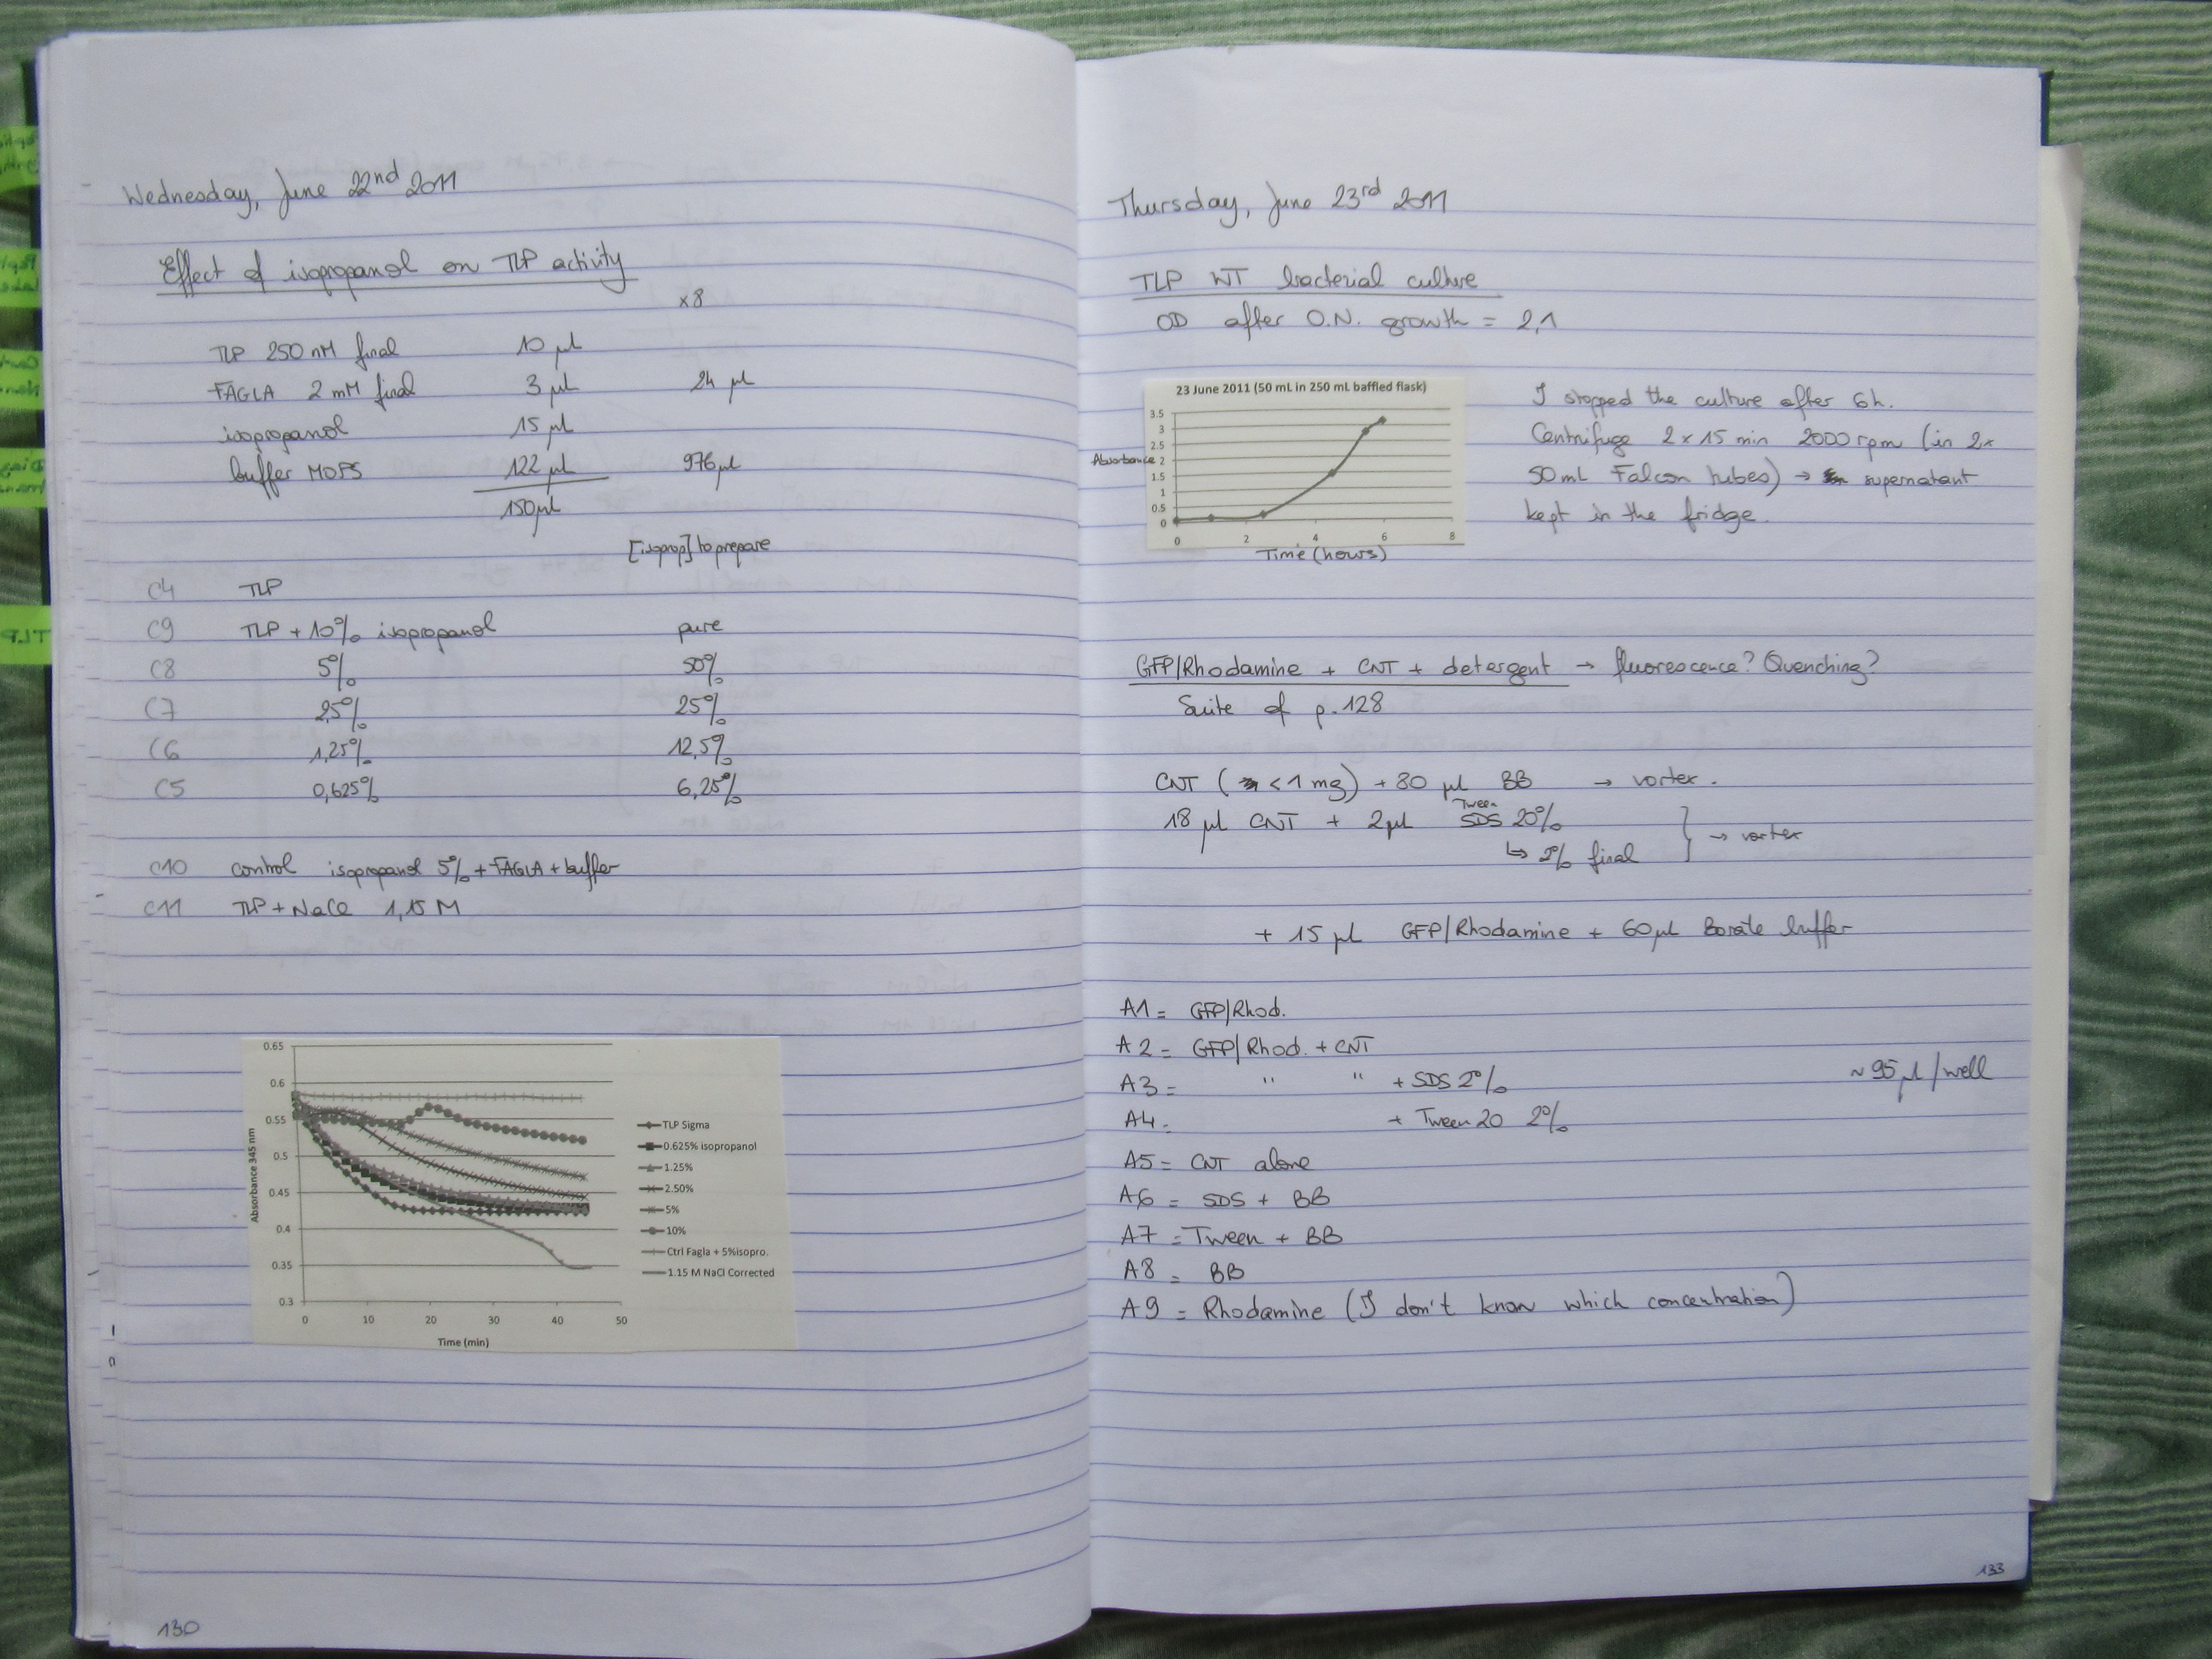 Wednesday, June 22nd 2011
Effect of isopropanol on TLP activity
x8
TLP 250 nM final 10 µl
FAGLA 2 mM final 3 µl 24 µl
isopropanol 15 µl
buffer MOPS 122 µl 976 µl
150 µl
[isoprop] to prepare
C4 TLP
C9 TLP + 10% isopropanol pure
C8 5% 50%
C7 2,5% 25%
C6 1,25% 12,5%
C5 0,625% 6,25%
C10 control isopropanol 5% + FAGLA + buffer
C11 TLP + NaCl 1,15 M
0.65
0.6
0.55
0.5
0.45
0.4
0.35
0.3
Absorbance 345 nm
0 10 20 30 40 50
Time (min)
TLP Sigma
0.625% isopropanol
1.25%
2.50%
5%
10%
Ctrl Fagla + 5%isopro.
1.15 M NaCl Corrected
130
Thursday, June 23rd 2011
TLP WT bacterial culture
OD after O.N. growth = 2,1
23 June 2011 (50 mL in 250 mL baffled flask)
3.5
3
2.5
Absorbance 2
1.5
1
0.5
0
0 2 4 6 8
Time (hours)
I stopped the culture after 6h.
Centrifuge 2 x 15 min 2000 rpm (in 2x
50 mL Falcon tubes) → supernatant
kept in the fridge.
GFP/Rhodamine + CNT + detergent → fluorescence? Quenching?
Suite of p.128
CNT (< 1 mg) + 80 µl BB → vortex.
Tween
18 µl CNT + 2 µl SDS 20%
↳ 2% final → vortex
+ 15 µl GFP/Rhodamine + 60 µl Borate buffer
A1 = GFP/Rhod.
A2 = GFP/Rhod. + CNT
A3 = " " + SDS 2% ~ 95 µl/well
A4 = + Tween 20 2%
A5 = CNT alone
A6 = SDS + BB
A7 = Tween + BB
A8 = BB
A9 = Rhodamine (I don't know which concentration)
133